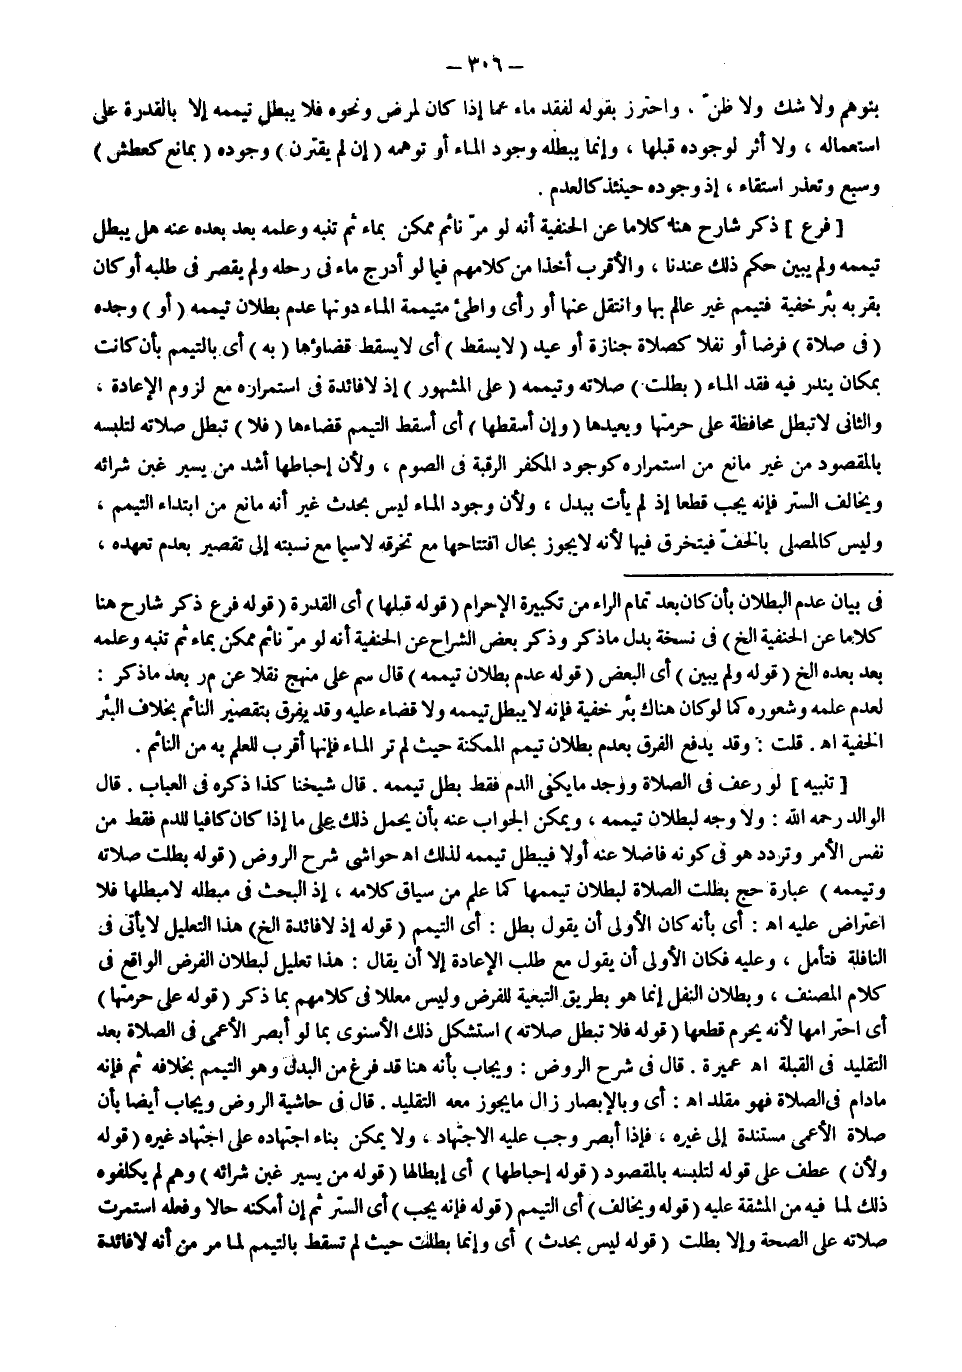 — ٣٠٦ —
بتوهم ولا شك ولا ظنّ ، واحترز بقوله لفقد ماء عما إذا كان لمرض ونحوه فلا يبطل تيممه إلا بالقدرة على
استعماله ، ولا أثر لوجوده قبلها ، وإنما يبطله وجود الماء أو توهمه ( إن لم يقترن ) وجوده ( بمانع كعطش )
وسبع وتعذر استقاء ، إذ وجوده حينئذ كالعدم .
[ فرع ] ذكر شارح هنا كلاما عن الحنفية أنه لو مرّ نائم ممكن بماء ثم تنبه وعلمه بعد بعده عنه هل يبطل
تيممه ولم يبين حكم ذلك عندنا ، والأقرب أخذا من كلامهم فيما لو أدرج ماء فى رحله ولم يقصر فى طلبه أو كان
بقربه بئر خفية فتيمم غير عالم بها وانتقل عنها أو رأى واطئ متيممة الماء دونها عدم بطلان تيممه ( أو ) وجده
( فى صلاة ) فرضا أو نفلا كصلاة جنازة أو عيد ( لا يسقط ) أى لا يسقط قضاؤها ( به ) أى بالتيمم بأن كانت
بمكان يندر فيه فقد الماء ( بطلت ) صلاته وتيممه ( على المشهور ) إذ لا فائدة فى استمراره مع لزوم الإعادة ،
والثانى لا تبطل محافظة على حرمتها ويعيدها ( وإن أسقطها ) أى أسقط التيمم قضاءها ( فلا ) تبطل صلاته لتلبسه
بالمقصود من غير مانع من استمراره كوجود المكفر الرقبة فى الصوم ، ولأن إحباطها أشد من يسير غبن شرائه
ويخالف الستر فإنه يجب قطعا إذ لم يأت ببدل ، ولأن وجود الماء ليس بحدث غير أنه مانع من ابتداء التيمم ،
وليس كالمصلى بالخفّ فيتخرق فيها لأنه لا يجوز بحال افتتاحها مع تخرقه لاسيما مع نسبته إلى تقصير بعدم تعهده ،
فى بيان عدم البطلان بأن كان بعد تمام الراء من تكبيرة الإحرام ( قوله قبلها ) أى القدرة ( قوله فرع ذكر شارح هنا
كلاما عن الحنفية الخ ) فى نسخة بدل ماذكر وذكر بعض الشراح عن الحنفية أنه لو مرّ نائم ممكن بماء ثم تنبه وعلمه
بعد بعده الخ ( قوله ولم يبين ) أى البعض ( قوله عدم بطلان تيممه ) قال سم على منهج نقلا عن م ر بعد ماذكر :
لعدم علمه وشعوره كما لو كان هناك بئر خفية فإنه لا يبطل تيممه ولا قضاء عليه وقد يفرق بتقصير النائم بخلاف البئر
الخفية اهـ . قلت : وقد يدفع الفرق بعدم بطلان تيمم الممكنة حيث لم تر الماء فإنها أقرب للعلم به من النائم .
[ تنبيه ] لو رعف فى الصلاة ووجد مايكفى الدم فقط بطل تيممه . قال شيخنا كذا ذكره فى العباب . قال
الوالد رحمه الله : ولا وجه لبطلان تيممه ، ويمكن الجواب عنه بأن يحمل ذلك على ما إذا كان كافيا للدم فقط من
نفس الأمر وتردد هو فى كونه فاضلا عنه أولا فيبطل تيممه لذلك اهـ حواشى شرح الروض ( قوله بطلت صلاته
وتيممه ) عبارة حج بطلت الصلاة لبطلان تيممها كما علم من سياق كلامه ، إذ البحث فى مبطله لا مبطلها فلا
اعتراض عليه اهـ : أى بأنه كان الأولى أن يقول بطل : أى التيمم ( قوله إذ لا فائدة الخ ) هذا التعليل لا يأتى فى
النافلة فتأمل ، وعليه فكان الأولى أن يقول مع طلب الإعادة إلا أن يقال : هذا تعليل لبطلان الفرض الواقع فى
كلام المصنف ، وبطلان النفل إنما هو بطريق التبعية للفرض وليس معللا فى كلامهم بما ذكر ( قوله على حرمتها )
أى احترامها لأنه يحرم قطعها ( قوله فلا تبطل صلاته ) استشكل ذلك الأسنوى بما لو أبصر الأعمى فى الصلاة بعد
التقليد فى القبلة اهـ عميرة . قال فى شرح الروض : ويجاب بأنه هنا قد فرغ من البدل وهو التيمم بخلافه ثم فإنه
مادام فى الصلاة فهو مقلد اهـ : أى وبالإبصار زال مايجوز معه التقليد . قال فى حاشية الروض ويجاب أيضا بأن
صلاة الأعمى مستندة إلى غيره ، فإذا أبصر وجب عليه الاجتهاد ، ولا يمكن بناء اجتهاده على اجتهاد غيره ( قوله
ولأن ) عطف على قوله لتلبسه بالمقصود ( قوله إحباطها ) أى إبطالها ( قوله من يسير غبن شرائه ) وهم لم يكلفوه
ذلك لما فيه من المشقة عليه ( قوله ويخالف ) أى التيمم ( قوله فإنه يجب ) أى الستر ثم إن أمكنه حالا وفعله استمرت
صلاته على الصحة وإلا بطلت ( قوله ليس بحدث ) أى وإنما بطلت حيث لم تسقط بالتيمم لما مر من أنه لا فائدة